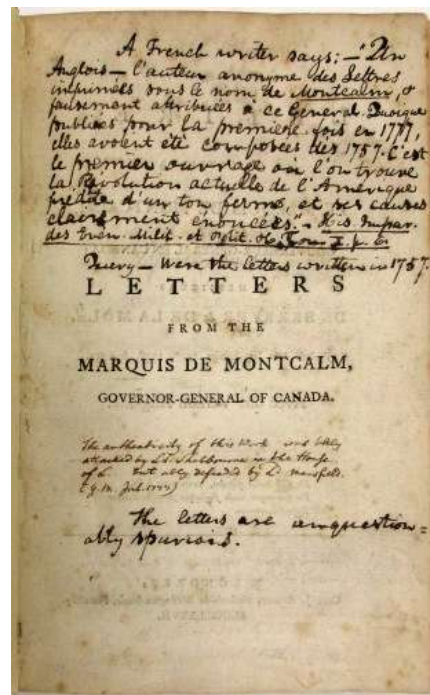 A French writer says: — "Un
Anglois — l'auteur anonyme des Lettres
imprimées sous le nom de Montcalm, &
faussement attribuées à ce General. Quoique
publiées pour la premiere fois en 1777,
elles avoient été composées dès 1757. C'est
le premier ouvrage où l'on trouve
la Révolution actuelle de l'Amérique
prédite d'un ton ferme, et ses causes
clairement énoncées." — His. Impar.
des Even. Milit. et Polit. Tom. I. p. 6.
Query — Were the letters written in 1757.
LETTERS
FROM THE
MARQUIS DE MONTCALM,
GOVERNOR-GENERAL OF CANADA.
The authenticity of this Work was
attacked by Ld. Shelbourne in the House
of L. but ably defended by Ld. Mansfield.
(G.M. Jul. 1777)
The letters are unquestion=
ably spurious.